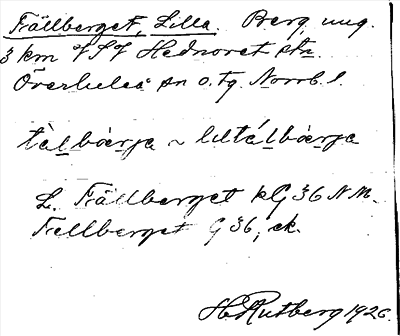 Fällberget, Lilla Berg, ung.
3 km VSV Hednoret stn
Överluleå sn o. tg. Norrb. l.
tä̀lbärja ~ liltä́lbärja
L. Fällberget kG 36 NM.
Fellberget G 36, ek.
HRutberg 1926.